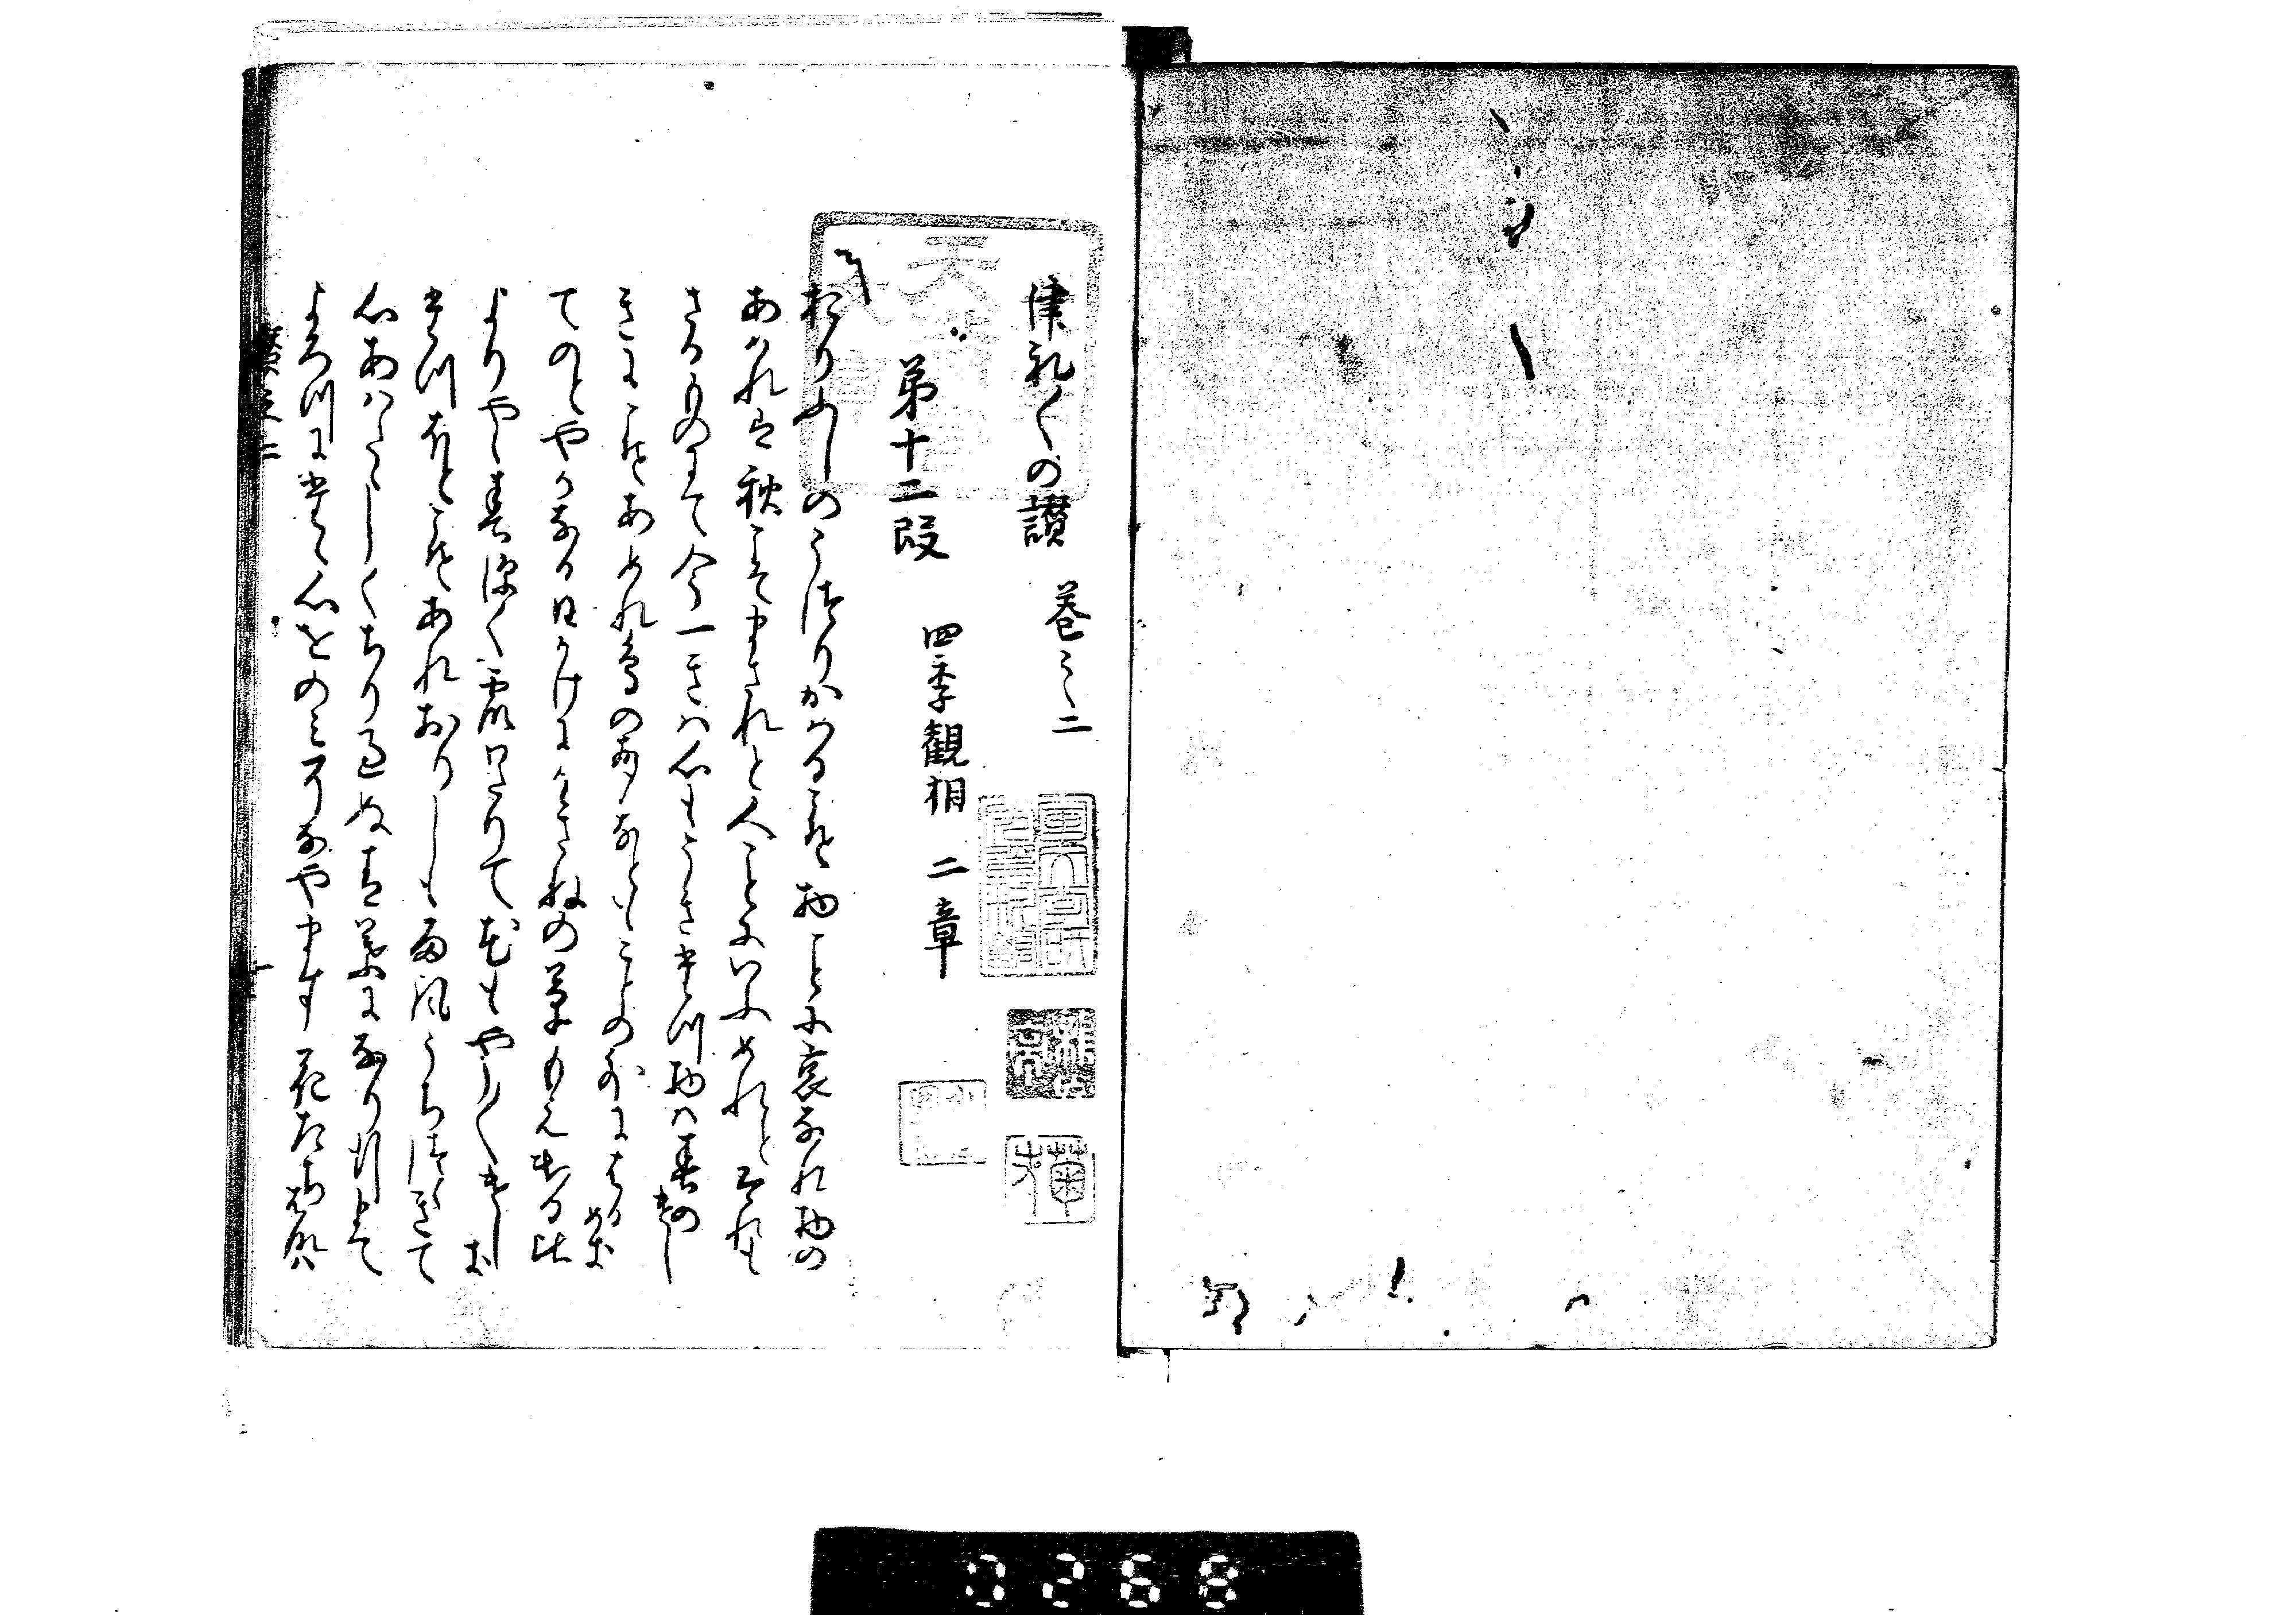 津礼〱の讃　巻之二
第十二段　四季観相　二章
おりふしのうつりかはるこそ物ことに哀なれ物の
あはれは秋こそまされと人ことにいふめれとそれも
さるものにて今一きは心もうきたつ物は春のけし
きにこそあめれ鳥の声なともことの外に春めき
てのとやかなる日かけにかきねの草もえ出る比
よりやゝ春深く霞わたりて花もやう〱けしき
たつほとこそあれおりしも雨風うちつゝきて
心あはたゝしくちり過ぬ青葉になり行まて
よろつにたゝ心をのみそなやます花たち花は
讃之二
一
0268